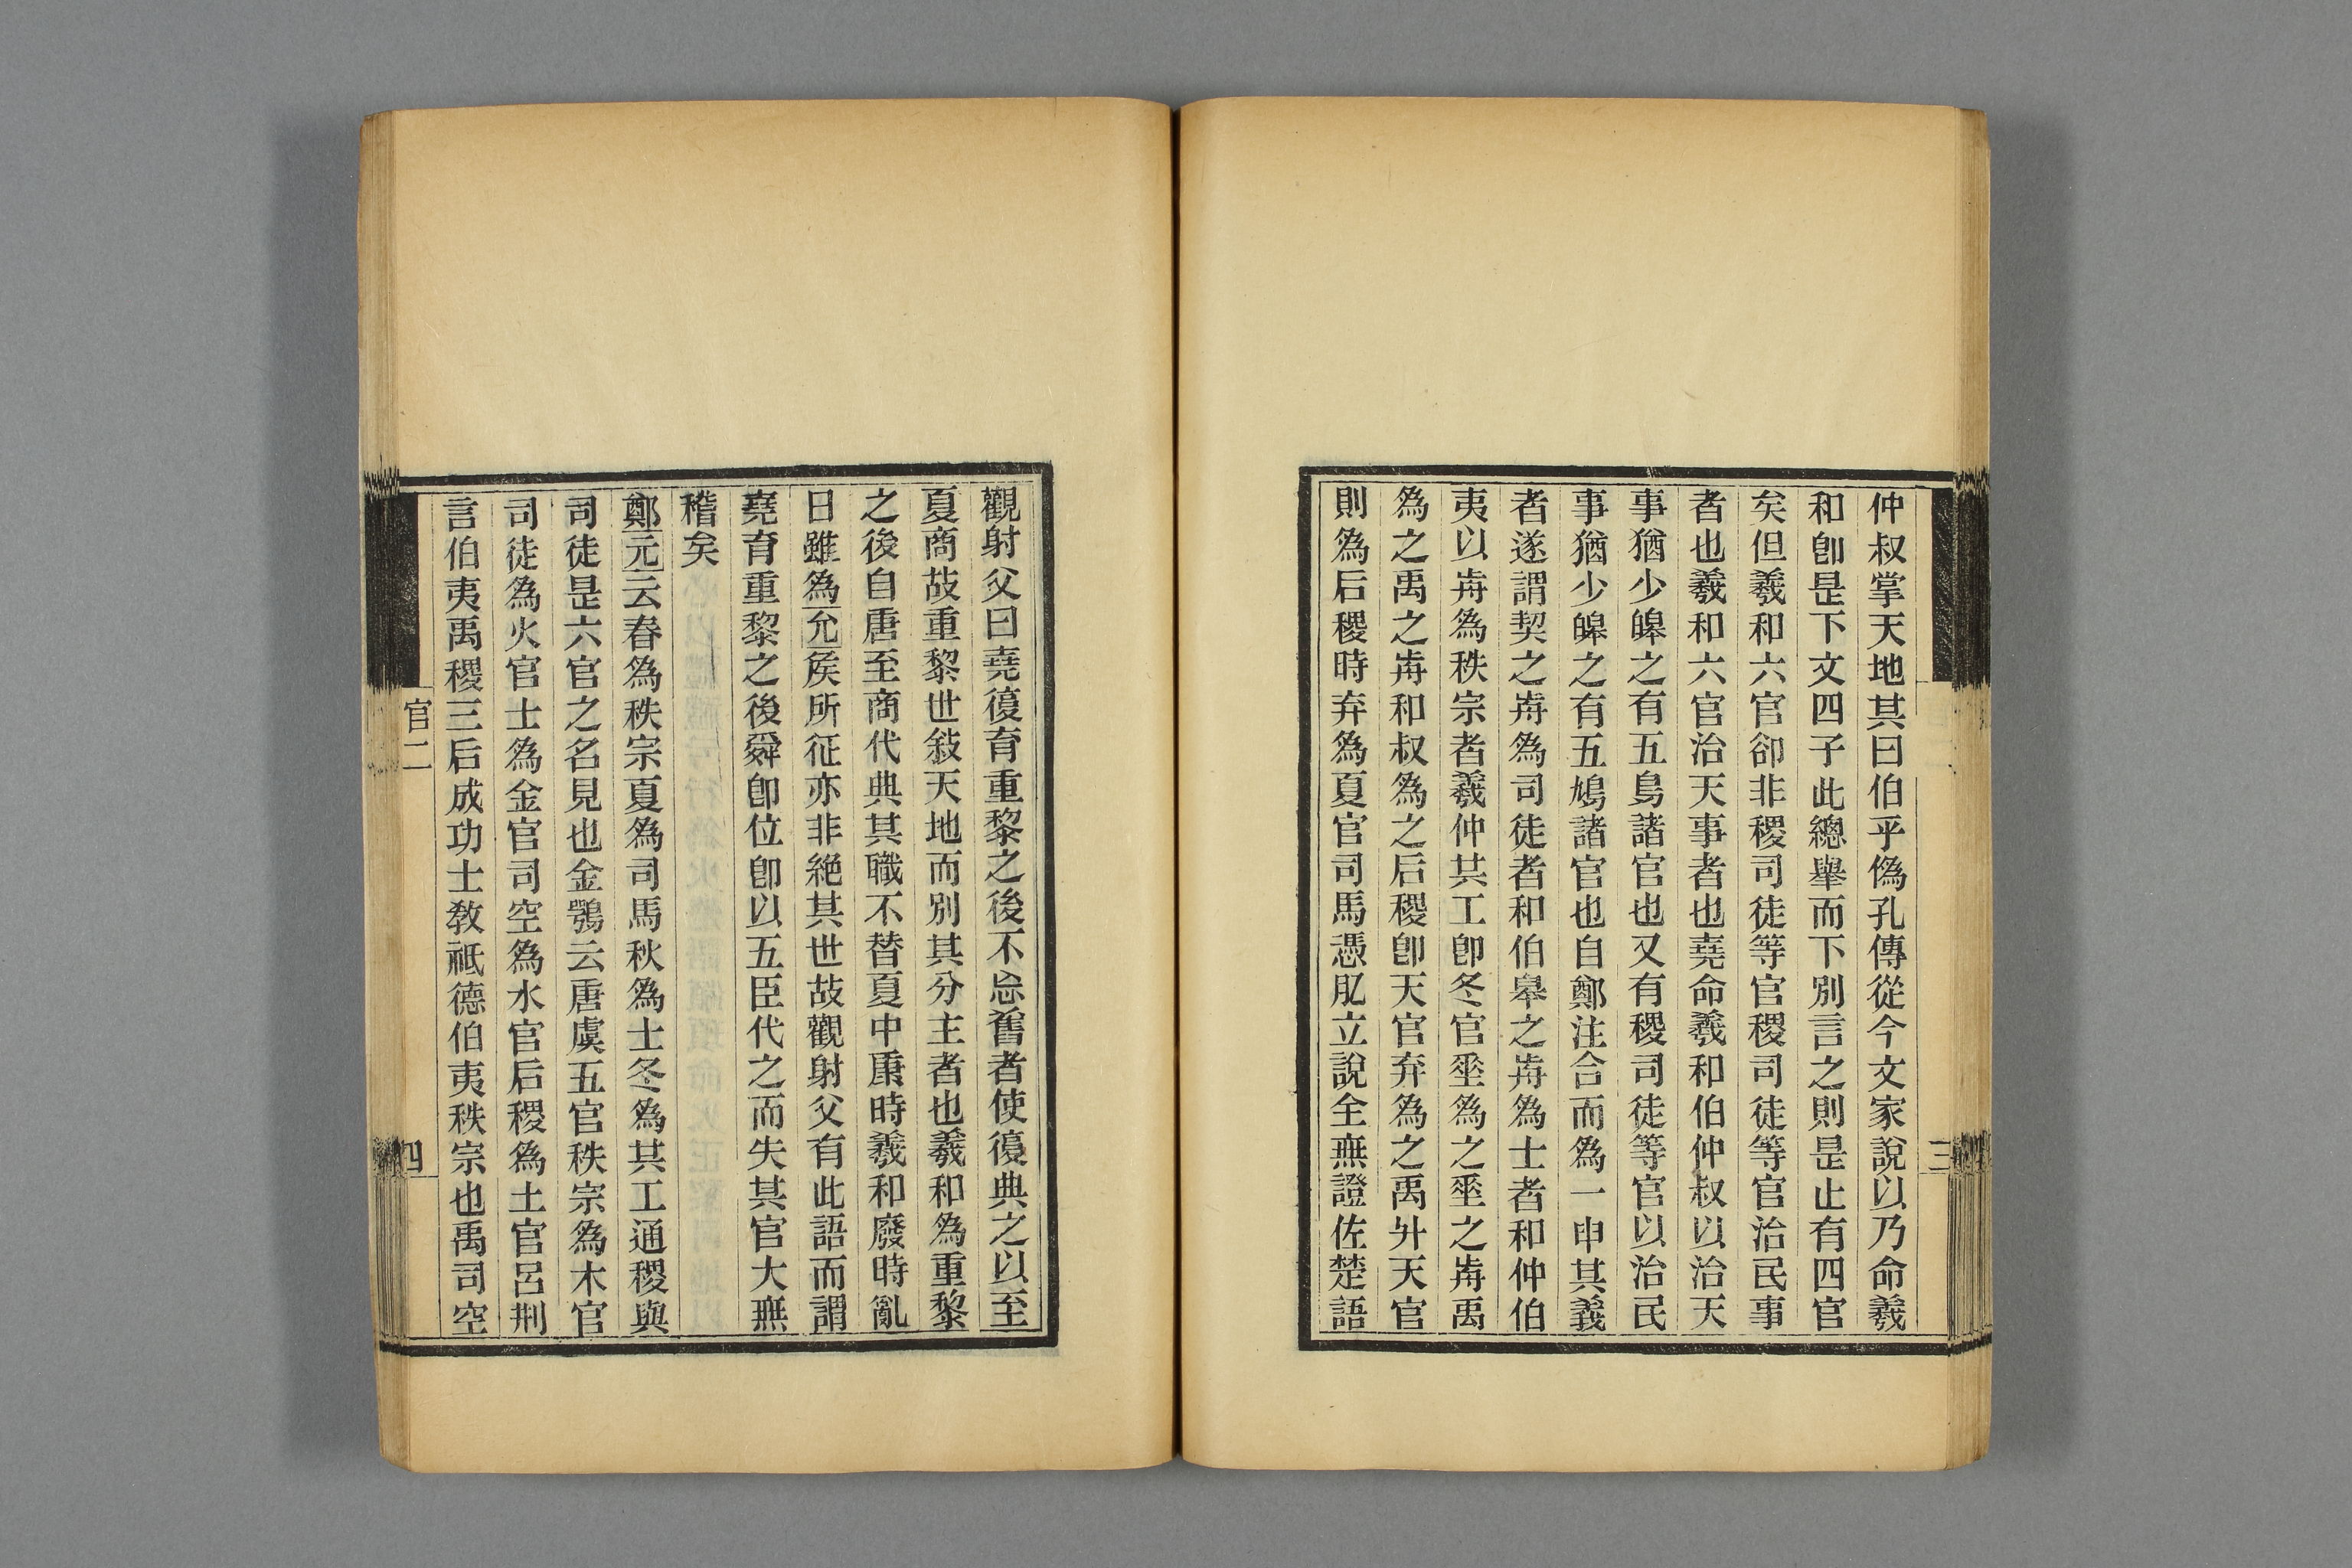 仲叔掌天地其曰伯乎僞孔傳從今文家說以乃命羲
和卽是下文四子此總舉而下別言之則是止有四官
矣但羲和六官卻非稷司徒等官稷司徒等官治民事
者也羲和六官治天事者也堯命羲和伯仲叔以治天
事猶少皞之有五鳥諸官也又有稷司徒等官以治民
事猶少皞之有五鳩諸官也自鄭注合而爲一申其義
者遂謂契之歬爲司徒者和伯皋之歬爲士者和仲伯
夷以歬爲秩宗者羲仲共工卽冬官垂爲之垂之歬禹
爲之禹之歬和叔爲之后稷卽天官弃爲之禹升天官
則爲后稷時弃爲夏官司馬憑肊立說全無證佐楚語
三
觀射父曰堯復育重黎之後不忘舊者使復典之以至
夏商故重黎世敍天地而別其分主者也羲和爲重黎
之後自唐至商代典其職不替夏中康時羲和廢時亂
日雖爲允矦所征亦非絕其世故觀射父有此語而謂
堯育重黎之後舜卽位卽以五臣代之而失其官大無
稽矣
鄭元云春爲秩宗夏爲司馬秋爲士冬爲共工通稷與
司徒是六官之名見也金鶚云唐虞五官秩宗爲木官
司徒爲火官士爲金官司空爲水官后稷爲土官呂刑
言伯夷禹稷三后成功士敎祗德伯夷秩宗也禹司空
官二
四